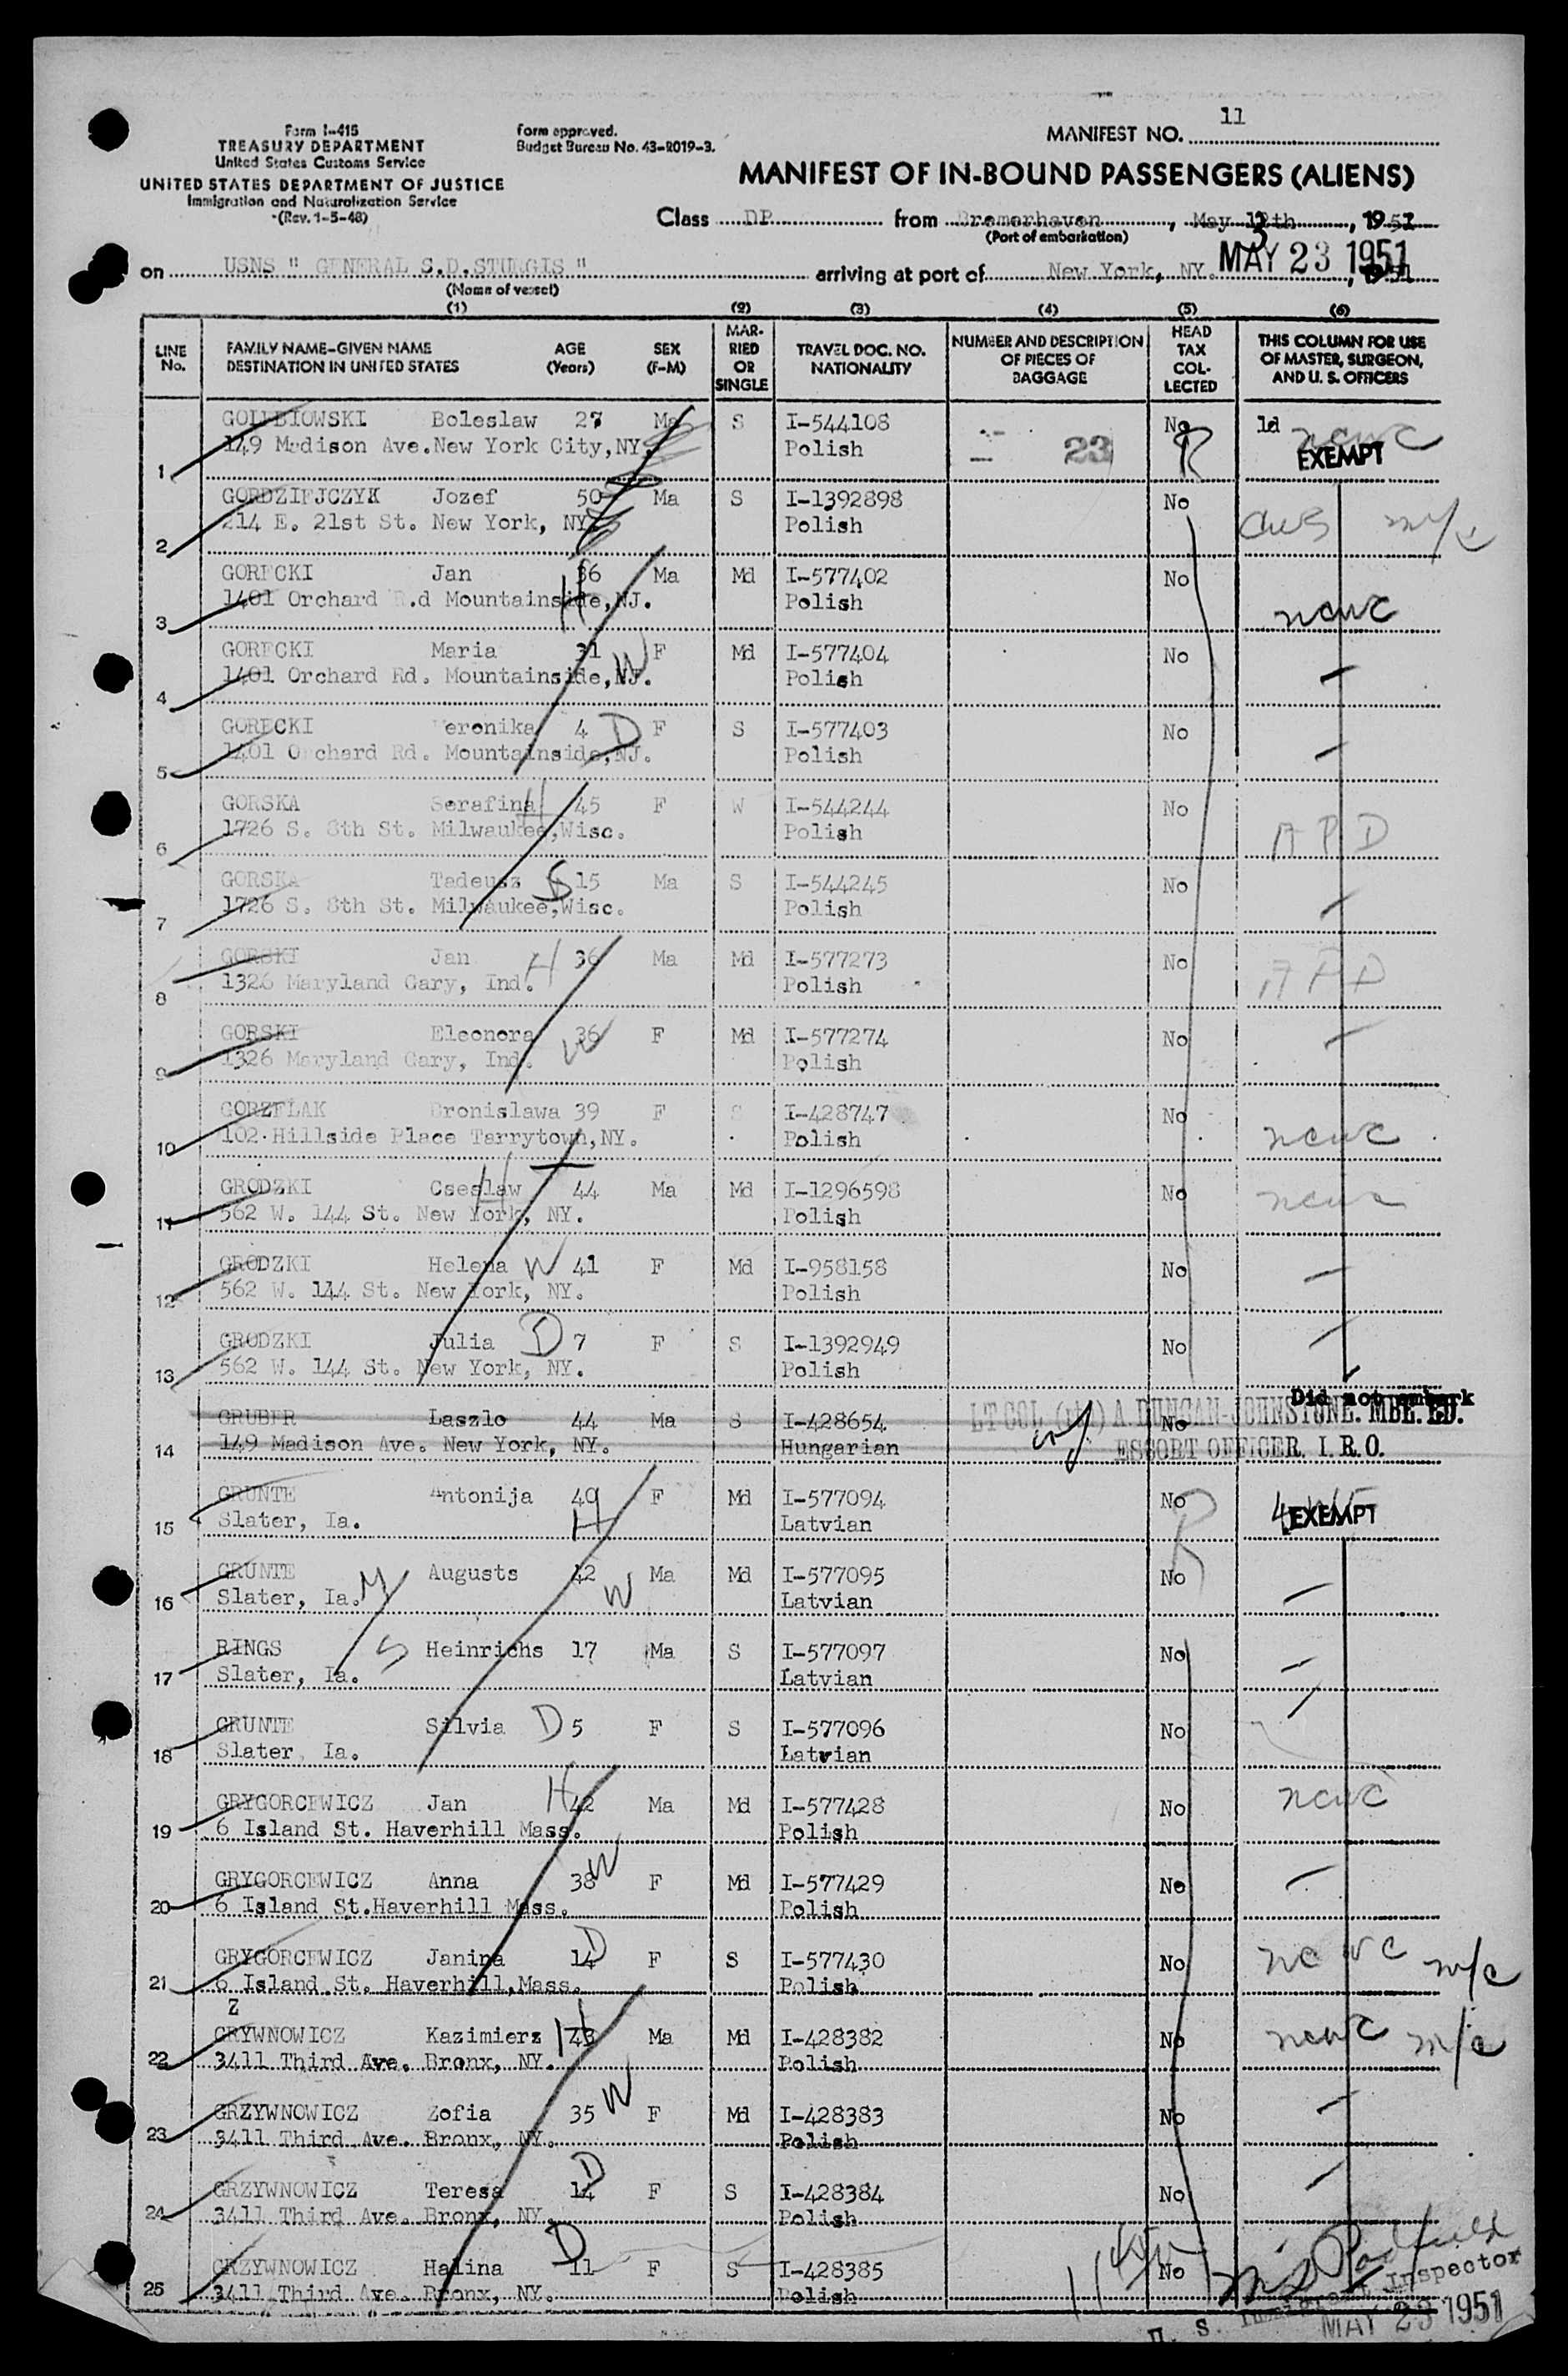 Form I-415
TREASURY DEPARTMENT
United States Customs Service
UNITED STATES DEPARTMENT OF JUSTICE
Immigration and Naturalization Service
(Rev. 1-5-48)
Form approved.
Budget Bureau No. 43-R019-3.
MANIFEST NO. 11
MANIFEST OF IN-BOUND PASSENGERS (ALIENS)
Class DP from Bremerhaven, May 13th, 1951
(Port of embarkation)
on USNS " GENERAL S.D.STURGIS " arriving at port of New York, NY. MAY 23 1951
(Name of vessel)
(1) (2) (3) (4) (5) (6)
LINE No.
FAMILY NAME-GIVEN NAME AGE SEX
DESTINATION IN UNITED STATES (Years) (F-M)
MARRIED OR SINGLE
TRAVEL DOC. NO. NATIONALITY
NUMBER AND DESCRIPTION OF PIECES OF BAGGAGE
HEAD TAX COLLECTED
THIS COLUMN FOR USE OF MASTER, SURGEON, AND U. S. OFFICERS
GOLEBIOWSKI Boleslaw 27 Ma S I-544108 No 1d ncwc
1 149 Madison Ave.New York City,NY. Polish 23 R EXEMPT
GORDZIEJCZYK Jozef 50 Ma S I-1392898 No
2 214 E. 21st St. New York, NY. Polish
GORECKI Jan 36 Ma Md I-577402 No
3 1401 Orchard R.d Mountainside,NJ. H Polish ncwc
GORECKI Maria 31 W F Md I-577404 No
4 1401 Orchard Rd. Mountainside,NJ. Polish
GORECKI Veronika 4 D F S I-577403 No
5 1401 Orchard Rd. Mountainside,NJ. Polish
GORSKA Serafina H 45 F W I-544244 No
6 1726 S. 8th St. Milwaukee,Wisc. Polish A P D
GORSKA Tadeusz S 15 Ma S I-544245 No
7 1726 S. 8th St. Milwaukee,Wisc. Polish
GORSKI Jan H 36 Ma Md I-577273 No A P D
8 1326 Maryland Gary, Ind. Polish
GORSKI Eleonora 36 W F Md I-577274 No
9 1326 Maryland Gary, Ind. Polish
GORZELAK Bronislawa 39 F S I-428747 No
10 102 Hillside Place Tarrytown,NY. Polish ncwc
GRODZKI Czeslaw H 44 Ma Md I-1296598 No ncwc
11 562 W. 144 St. New York, NY. Polish
GRODZKI Helena W 41 F Md I-958158 No
12 562 W. 144 St. New York, NY. Polish
GRODZKI Julia D 7 F S I-1392949 No
13 562 W. 144 St. New York, NY. Polish
Did not embark
GRUBER Laszlo 44 Ma S I-428654 No LT COL A. DUNCAN-JOHNSTONE. MBE. ED.
14 149 Madison Ave. New York, NY. Hungarian ESCORT OFFICER. I.R.O.
GRUNTE Antonija 49 F Md I-577094 No
15 Slater, Ia. H Latvian R EXEMPT
GRUNTE Augusts 42 W Ma Md I-577095 No
16 Slater, Ia. Latvian
RINGS S Heinrichs 17 Ma S I-577097 No
17 Slater, Ia. Latvian
GRUNTE Silvia D 5 F S I-577096 No
18 Slater, Ia. Latvian
GRYGORCEWICZ Jan H 42 Ma Md I-577428 No ncwc
19 6 Island St. Haverhill Mass. Polish
GRYGORCEWICZ Anna 38 W F Md I-577429 No
20 6 Island St.Haverhill Mass. Polish
GRYGORCEWICZ Janina 14 D F S I-577430 No ncwc m/c
21 6 Island St. Haverhill,Mass. Polish
Z
GRYWNOWICZ Kazimierz H 43 Ma Md I-428382 No ncwc m/c
22 3411 Third Ave. Bronx, NY. Polish
GRZYWNOWICZ Zofia 35 W F Md I-428383 No
23 3411 Third Ave. Bronx, NY. Polish
GRZYWNOWICZ Teresa 14 D F S I-428384 No
24 3411 Third Ave. Bronx, NY. Polish
GRZYWNOWICZ Halina 11 D F S I-428385 No
25 3411 Third Ave. Bronx, NY. Polish
U. S. Immigrant Inspector
MAY 23 1951